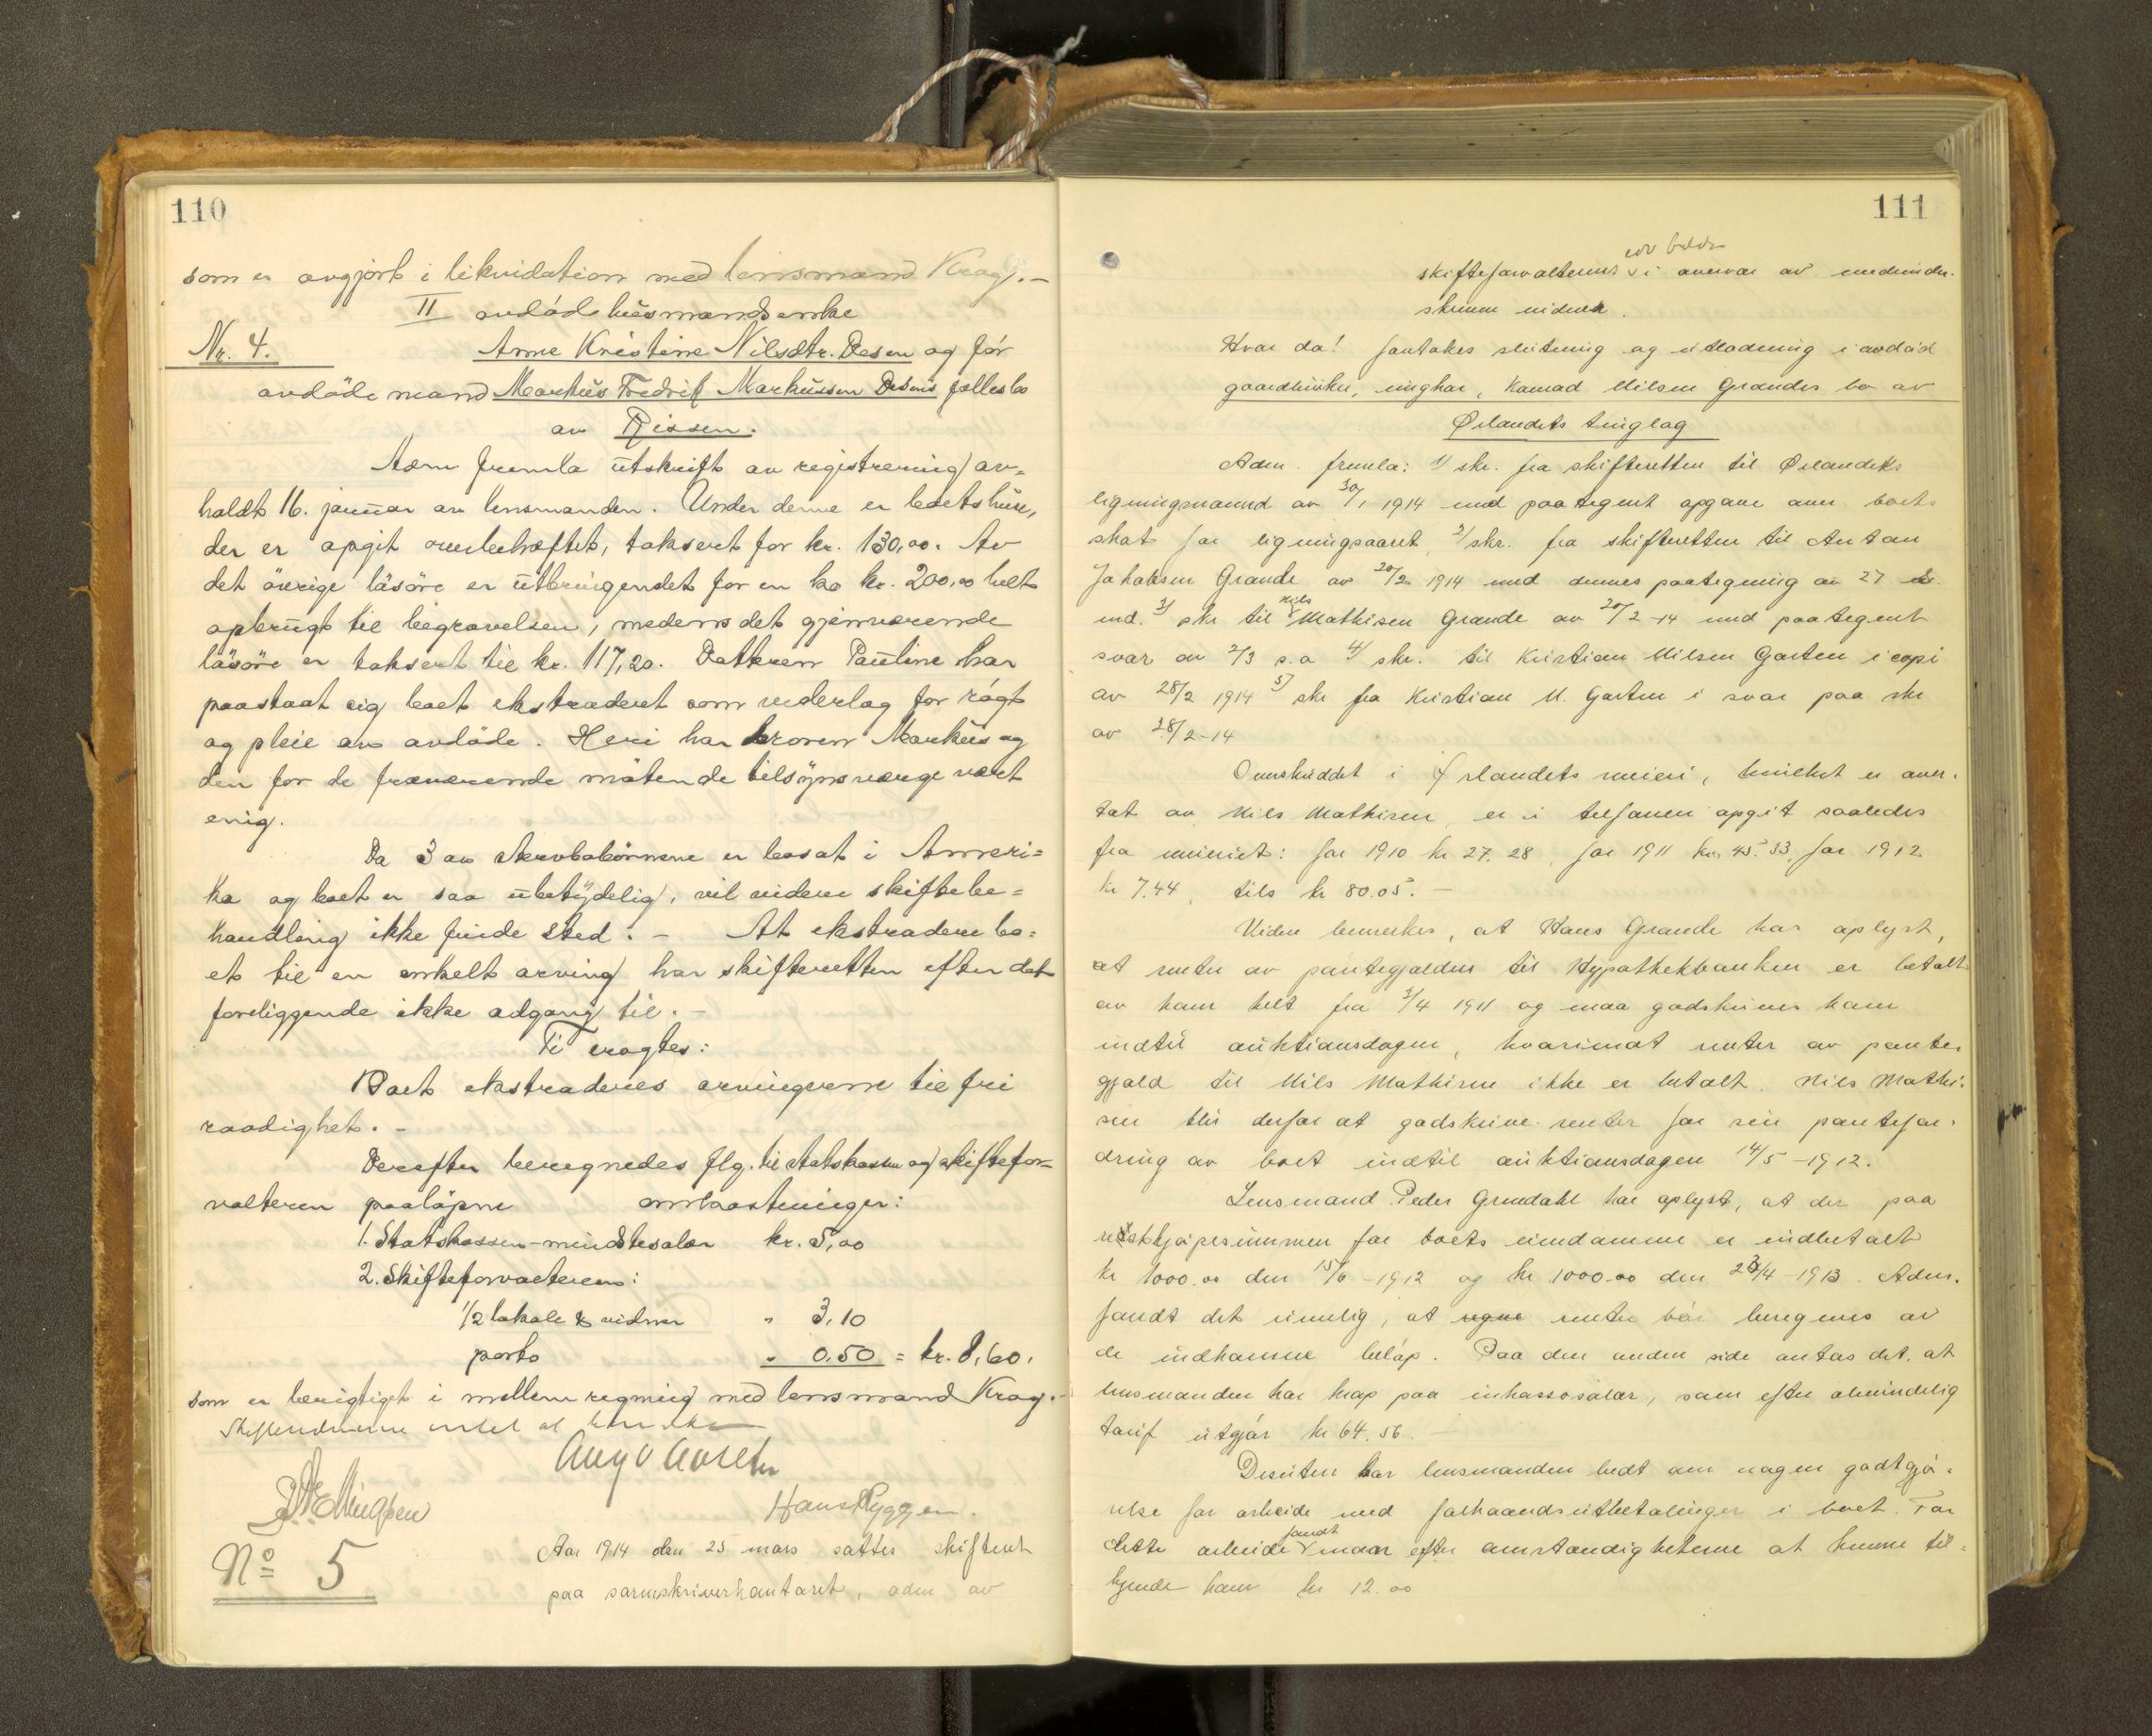 110
som er avgjort i likvidation med lensmand Krag. -
II avdöde husmandsenke
Nr. 4. Anne Kristine Nilsdtr. Desen og før
avdöde mand Markus Fredrik Markussen Desens fællesbo
av Rissen.
Adm fremla utskrift av registrering av-
holdt 16. januar av lensmanden. Under denne er boets huse,
der er opgit overbehæftet, taksert for kr. 130,00. Av
det övrige läsöre er utbringendet for en ko kr. 200,00 helt
opbrugt til begravelsen, medens det gjenværende
läsöre er taksert til kr. 117,20. Datteren Pauline har
paastaat sig boet ekstradert som vederlag for rögt
og pleie av avdöde. Heri har broren Markus og
den for de fraværende mötende tilsynsværge været
enig.
Da 3 av stervbobörnene er bosat i Ameri=
ka og boet er saa ubetydelig, vil videre skiftebe=
handling ikke finde sted. - At ekstradere bo=
et til en enkelt arving har skifteretten efter det
foreliggende ikke adgang til. -
Ti eragtes:
Boet ekstraderes arvingerne til fri
raadighet. -
Derefter beregnedes flg. til statskassen og skiftefor=
valteren paalöpne omkostninger:
1. Statskassen - mindstesalær kr. 5,00
2. Skifteforvalteren:
1/2 lokale & vidner " 3,10
porto " 0,50 = kr. 8,60.
som er berigtiget i mellemregning med lensmand Krag. -
Skiftevidnerne intet at bemerke
Hans Ryggen.
No 5 Aar 1914 den 25 mars sattes skifteret
paa sorenskriverkontoret, adm av
111
skifteforvalterens i overvær av medunder-
skrevne vidner.
Hvor da! foretokes slutning og utlodning i avdød
gaardbruker, ungkar, Konrad Nilsen Grandes bo av
Ørlandets tinglag
Adm. fremla: 1/ skr. fra skifteretten til Ørlandets
ligningsmænd av 30/1 1914 med paategnet opgave over boets
skat for ligningsaaret, 2/ skr. fra skifteretten til Anton
Jakobsen Grande av 20/2 1914 med dennes paategning av 27 s.
md. 3/ skr til Nils Mathisen Grande av 20/2 -14 med paategnet
svar av 2/3 s.a 4/ skr. til Kristian Nilsen Garten i copi
av 28/2 1914 5/ skr fra Kristian N. Garten i svar paa skr
av 28/2 -14
Overskuddet i Ørlandets meieri, hvilket er over-
tat av Nils Mathisen, er i telefonen opgit saaledes
fra meieriet: for 1910 kr 27.28, for 1911 kr. 45.33, for 1912
kr 7.44, tils kr 80.05. -
Videre bemerkes, at Hans Grande har oplyst,
at renter av pantegjælden til Hypothekbanken er betalt
av ham helt fra 3/4 1911 og maa godskrives ham
indtil auktionsdagen, hvorimot renter av pante-
gjæld til Nils Mathisen ikke er betalt. Nils Mathi-
sen blir derfor at godskrive renter for sin pantefor-
dring av boet indtil auktionsdagen 14/5 -1912.
Lensmand Peder Grøndahl har oplyst, at der paa
restkjøpesummen for boets eiendomme er indbetalt
kr 1000.00 den 15/6 -1912 og kr 1000.00 den 23/4 -1913. Adm.
fandt det rimelig, at renter bør beregnes av
de indkomne beløp. Paa den anden side antas det, at
lensmanden har krav paa inkassosalær, som efter almindelig
tarif utgjør kr 64.56. -
Desuten har lensmanden bedt om nogen godtgjø-
relse for arbeide med forhaandsutbetalinger i boet. For
dette arbeide fandt man efter omstændigheterne at kunne til-
kjende ham kr 12.00